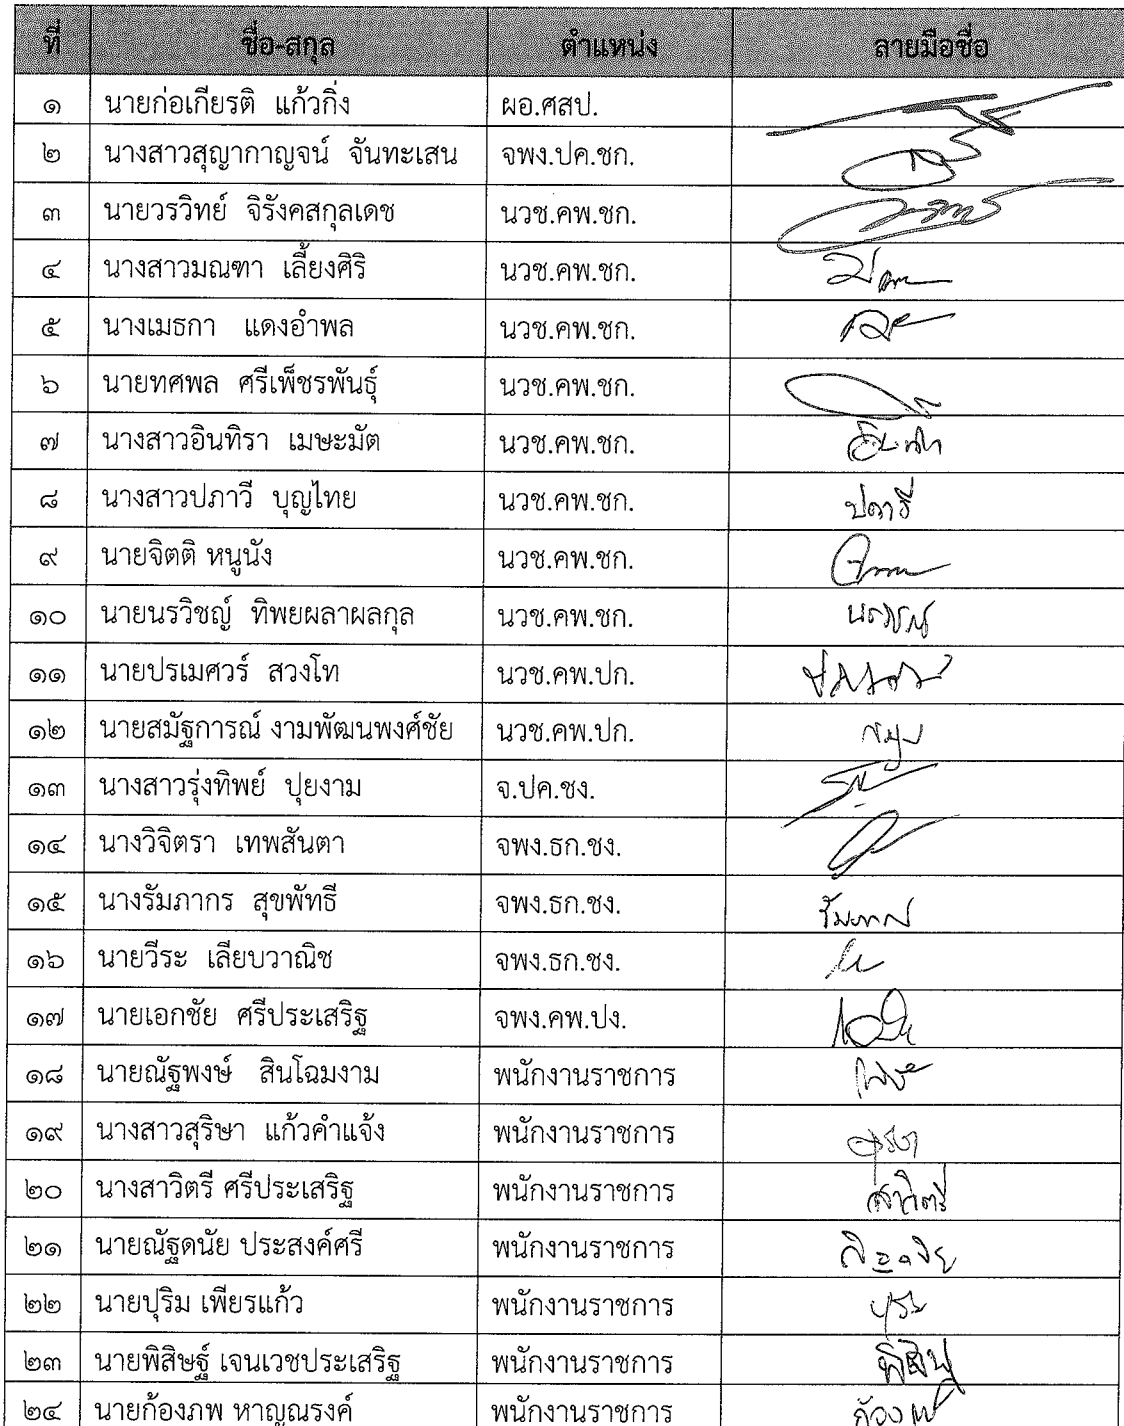 ที่ ชื่อ-สกุล ตำแหน่ง ลายมือชื่อ
๑ นายก่อเกียรติ แก้วกิ่ง ผอ.ศสป.
๒ นางสาวสุญากาญจน์ จันทะเสน จพง.ปค.ชก.
๓ นายวรวิทย์ จิรังคสกุลเดช นวช.คพ.ชก.
๔ นางสาวมณฑา เลี้ยงศิริ นวช.คพ.ชก.
๕ นางเมธกา แดงอำพล นวช.คพ.ชก.
๖ นายทศพล ศรีเพ็ชรพันธุ์ นวช.คพ.ชก.
๗ นางสาวอินทิรา เมษะมัต นวช.คพ.ชก.
๘ นางสาวปภาวี บุญไทย นวช.คพ.ชก. ปภาวี
๙ นายจิตติ หนูนัง นวช.คพ.ชก.
๑๐ นายนรวิชญ์ ทิพยผลาผลกุล นวช.คพ.ชก.
๑๑ นายปรเมศวร์ สวงโท นวช.คพ.ปก.
๑๒ นายสมัฐการณ์ งามพัฒนพงศ์ชัย นวช.คพ.ปก.
๑๓ นางสาวรุ่งทิพย์ ปุยงาม จ.ปค.ชง.
๑๔ นางวิจิตรา เทพสันตา จพง.ธก.ชง.
๑๕ นางรัมภากร สุขพัทธี จพง.ธก.ชง.
๑๖ นายวีระ เลียบวาณิช จพง.ธก.ชง.
๑๗ นายเอกชัย ศรีประเสริฐ จพง.คพ.ปง.
๑๘ นายณัฐพงษ์ สินโฉมงาม พนักงานราชการ
๑๙ นางสาวสุริษา แก้วคำแจ้ง พนักงานราชการ
๒๐ นางสาวิตรี ศรีประเสริฐ พนักงานราชการ สาวิตรี
๒๑ นายณัฐดนัย ประสงค์ศรี พนักงานราชการ
๒๒ นายปุริม เพียรแก้ว พนักงานราชการ
๒๓ นายพิสิษฐ์ เจนเวชประเสริฐ พนักงานราชการ
๒๔ นายก้องภพ หาญณรงค์ พนักงานราชการ